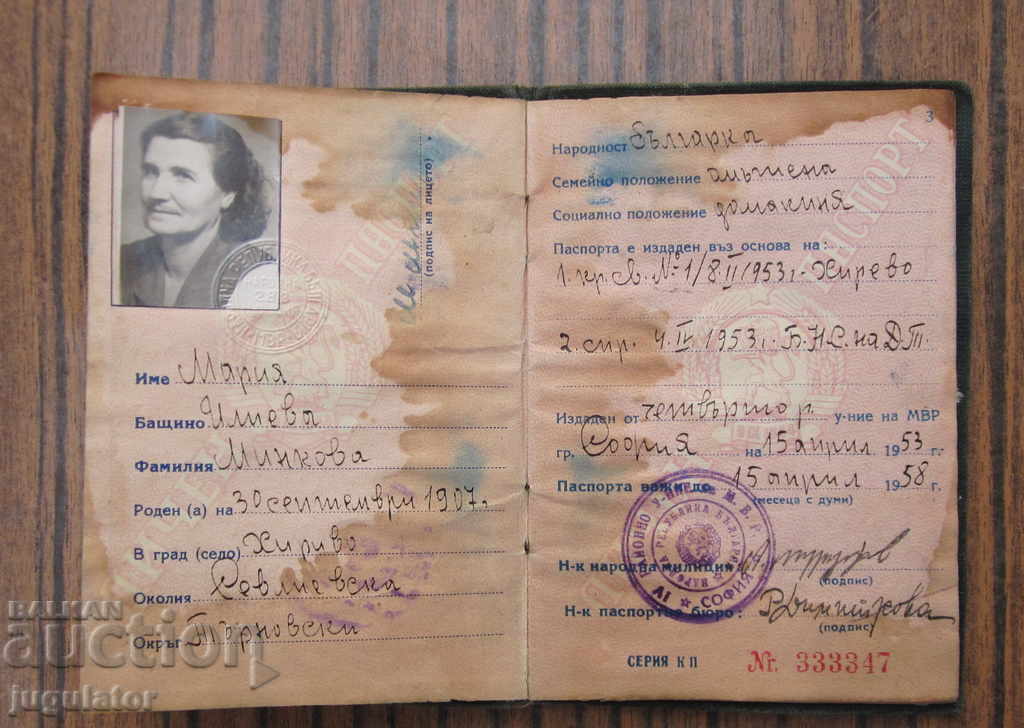 (подпис на лицето)
Име Мария
Бащино Илиева
Фамилия Минкова
Роден (а) на 30 септември 1907 г.
В град (село) Хирево
Околия Севлиевска
Окръг Търновски
3
ПАСПОРТ
Народност Българка
Семейно положение омъжена
Социално положение домакиня
Паспорта е издаден въз основа на:
1. кр. св. № 1/8.II 1953 г. Хирево
2. спр. 4.IV 1953 г. Б.Н.С. на Д.Т.
Издаден от четвърто р. у-ние на МВР
гр. София на 15 април 1953 г.
Паспорта важи до 15 април 1958 г.
(месеца с думи)
Н-к народна милиция:
(подпис)
Н-к паспортно бюро:
(подпис)
СЕРИЯ КП Nr. 333347
РАЙОННО У-НИЕ НА М.В.Р. IV СОФИЯ
НАРОДНА РЕПУБЛИКА БЪЛГАРИЯ
BALKAN
auction
jugulator